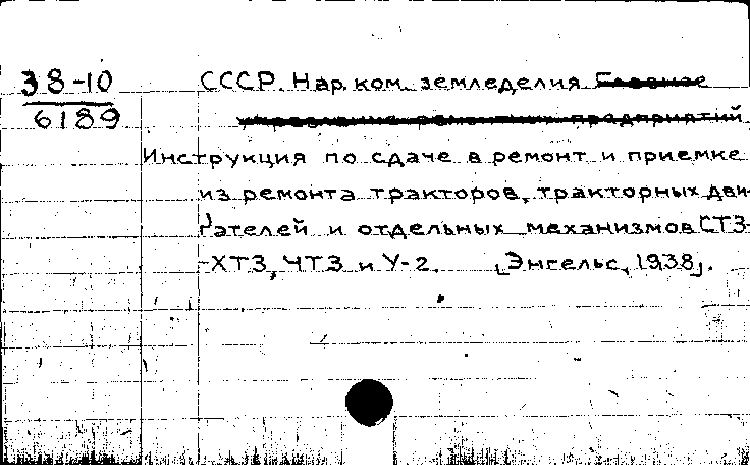 38-10
6189
СССР. Нар. ком. земледелия Главное
управление ремонтных предприятий
Инструкция по сдаче в ремонт и приемке
из ремонта тракторов, тракторных дви-
гателей и отдельных механизмов СТЗ-
-ХТЗ, ЧТЗ и У-2. [Энгельс, 1938].